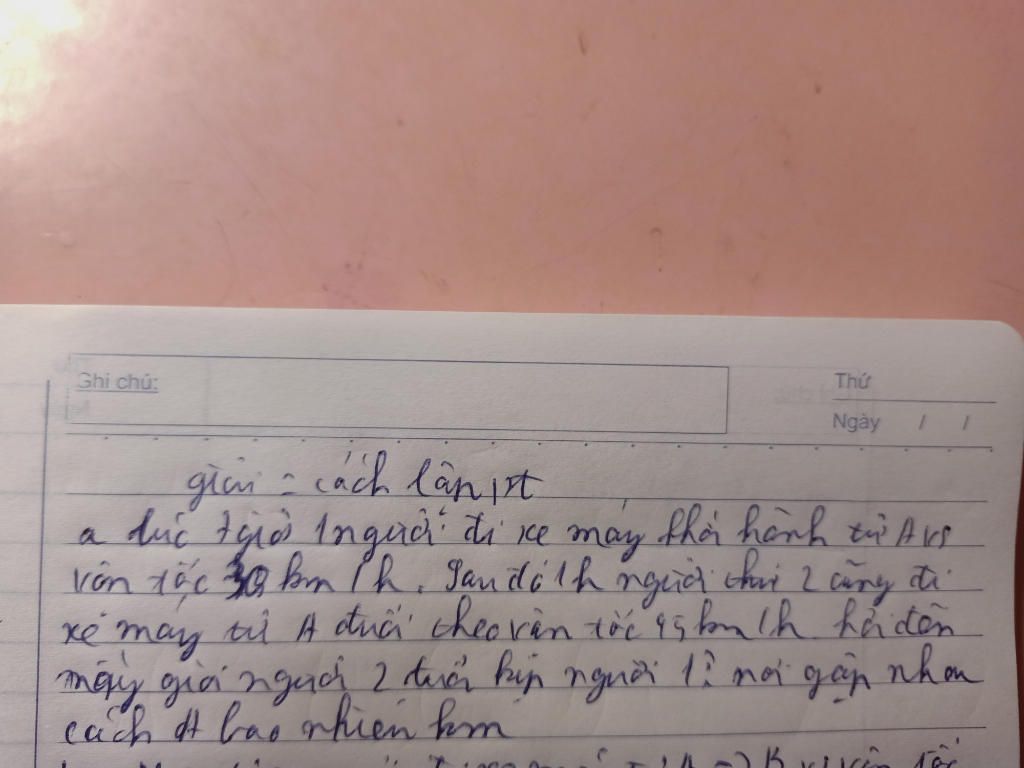 Ghi chú:
Thứ
Ngày / /
giải = cách lập pt
a lúc 7 giờ 1 người đi xe máy khởi hành từ A vs
vân tốc 30 km/h. Sau đó 1h người thứ 2 cũng đi
xe máy từ A đuổi theo vân tốc 45 km/h hỏi đến
mấy giờ người 2 đuổi kịp người 1? nơi gặp nhau
cách A bao nhiên km